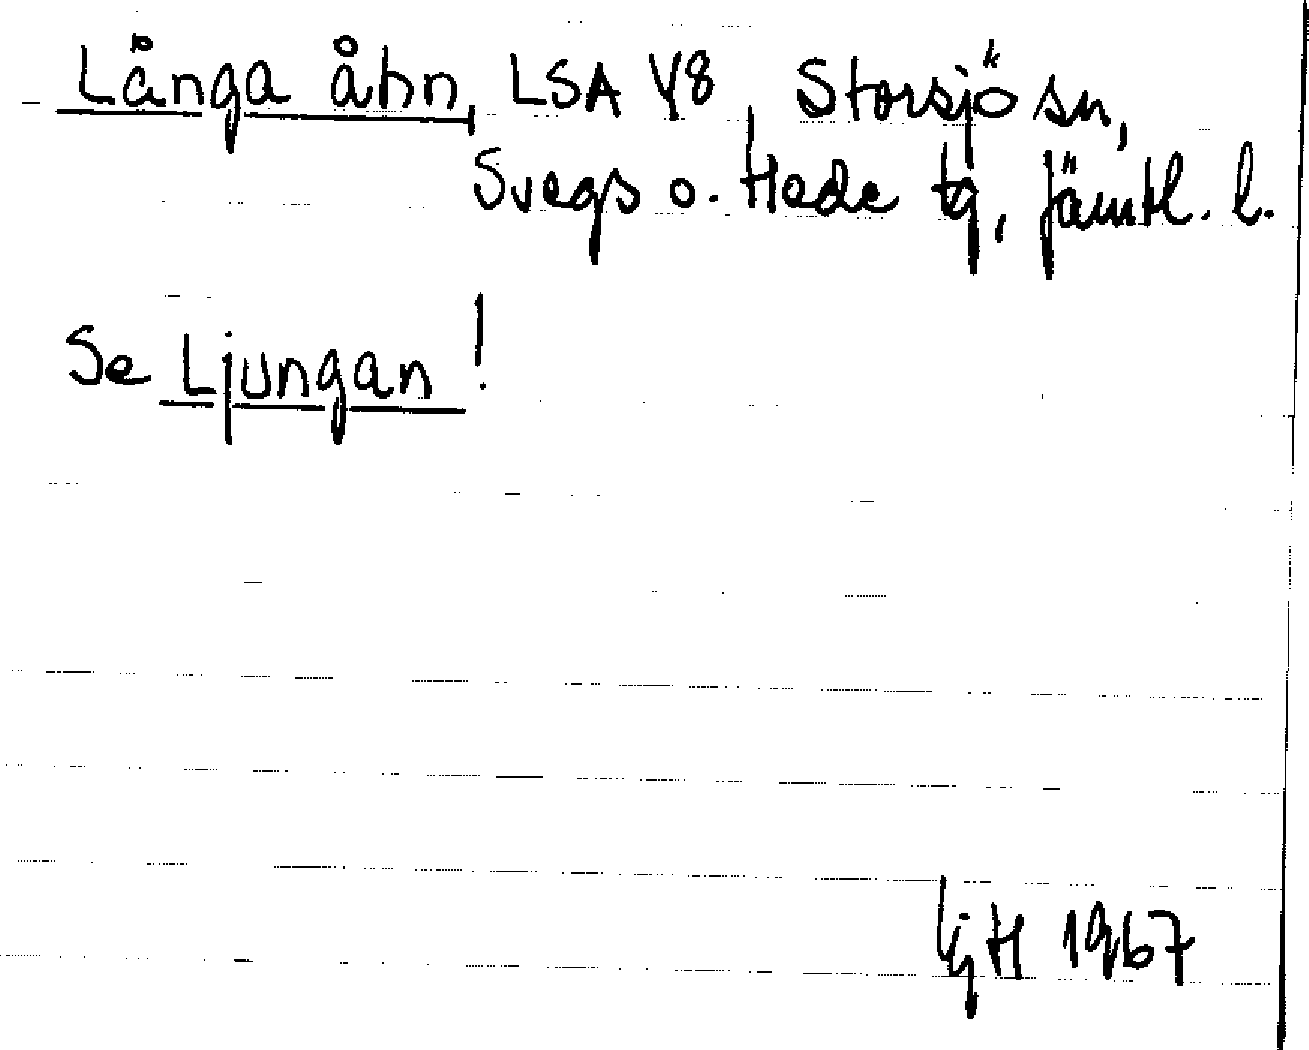 Långa åhn, LSA Y8, Storsjö sn,
Svegs o. Hede tg, Jämtl. l.
Se Ljungan!
GjH 1967